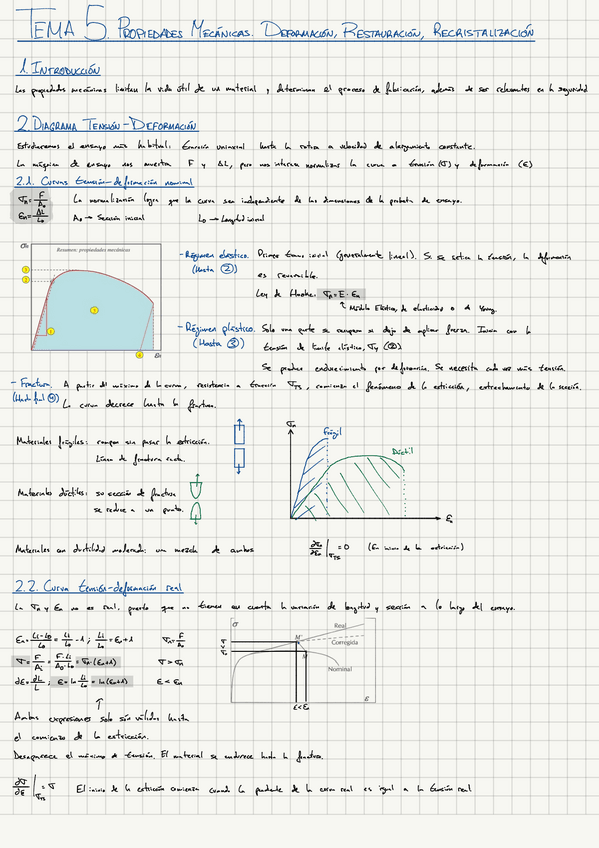 TEMA 5. PROPIEDADES MECÁNICAS. DEFORMACIÓN, RESTAURACIÓN, RECRISTALIZACIÓN
1. INTRODUCCIÓN
Las propiedades mecánicas limitan la vida útil de un material, y determinan el proceso de fabricación, además de ser relevantes en la seguridad
2. DIAGRAMA TENSIÓN-DEFORMACIÓN
Estudiaremos el ensayo más habitual: tracción uniaxial hasta la rotura a velocidad de alargamiento constante.
La máquina de ensayo nos muestra F y ΔL, pero nos interesa normalizar la curva a tensión (σ) y deformación (ε)
2.1. Curvas tensión-deformación nominal
σn = F/A₀ La normalización logra que la curva sea independiente de las dimensiones de la probeta de ensayo.
εn = ΔL/L₀ A₀ → Sección inicial L₀ → Longitud inicial
Resumen: propiedades mecánicas
- Régimen elástico. Primer tramo inicial (generalmente lineal). Si se retira la tracción, la deformación
(Hasta ②) es reversible.
Ley de Hooke. σn = E · εn
↑ Módulo Elástico, de elasticidad o de Young.
- Régimen plástico. Solo una parte se recupera si deja de aplicar fuerza. Inicia con la
(Hasta ③) tensión de límite elástico, σy (②).
Se produce endurecimiento por deformación. Se necesita cada vez más tensión
- Fractura. A partir del máximo de la curva, resistencia a tracción σTS, comienza el fenómeno de la estricción, estrechamiento de la sección.
(Hasta final ④) La curva decrece hasta la fractura.
Materiales frágiles: rompen sin pasar la estricción.
Línea de fractura recta.
σn
Frágil
Dúctil
εn
Materiales dúctiles: su sección de fractura
se reduce a un punto.
Materiales con ductilidad moderada: un mezcla de ambos
∂σn/∂εn |σTS = 0 (En inicio de la estricción)
2.2. Curva tensión-deformación real
La σn y εn no es real, puesto que no tienen en cuenta la variación de longitud y sección a lo largo del ensayo.
εn = Li-L₀/L₀ = Li/L₀ - 1 ; Li/L₀ = εn+1 σn = F/A₀
σ = F/Ai = F·Li/A₀·L₀ = σn·(εn+1) σ > σn
dε = dL/L ; ε = ln Li/L₀ = ln(εn+1) ε < εn
σ
Real
M'
Corregida
M
Nominal
ε
ε < εn
↑
Ambas expresiones solo son válidas hasta
el comienzo de la estricción.
Desaparece el máximo de tensión. El material se endurece hasta la fractura.
∂σ/∂ε |σTS = σ El inicio de la estricción comienza cuando la pendiente de la curva real es igual a la tensión real